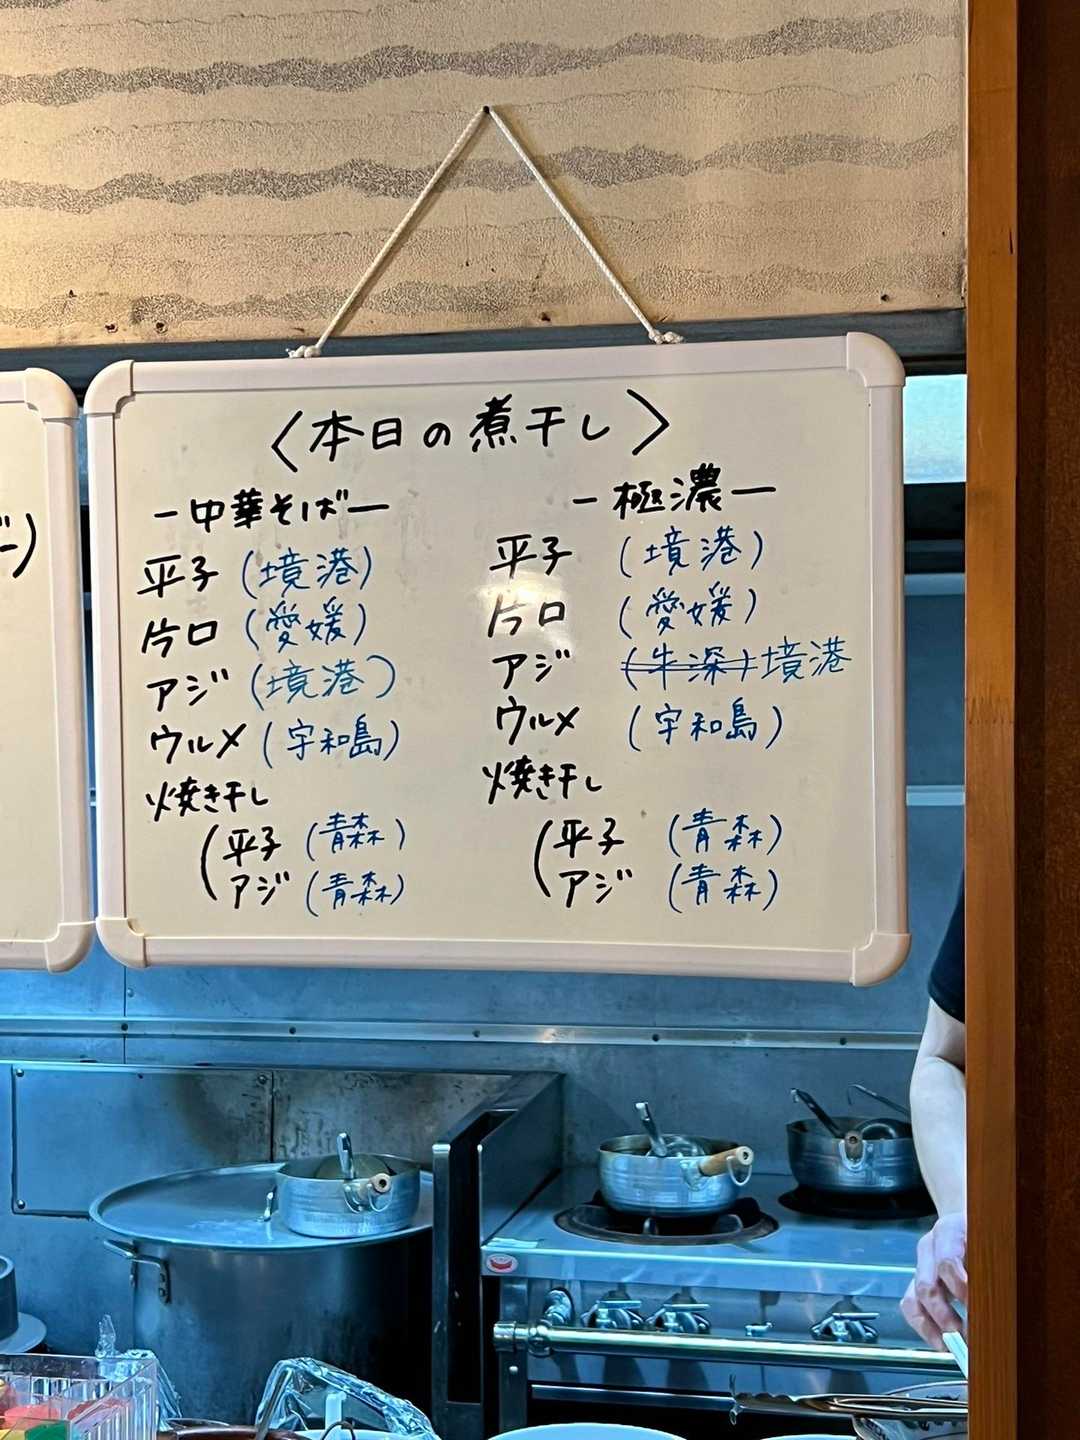 〈本日の煮干し〉
ー中華そばー
平子 (境港)
片口 (愛媛)
アジ (境港)
ウルメ (宇和島)
焼き干し
(平子 (青森)
アジ (青森)
ー極濃ー
平子 (境港)
片口 (愛媛)
アジ (牛深)境港
ウルメ (宇和島)
焼き干し
(平子 (青森)
アジ (青森)